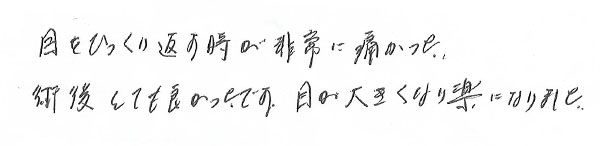 目をひっくり返す時が非常に痛かった。
術後とても良かったです。目が大きくなり楽になりました。